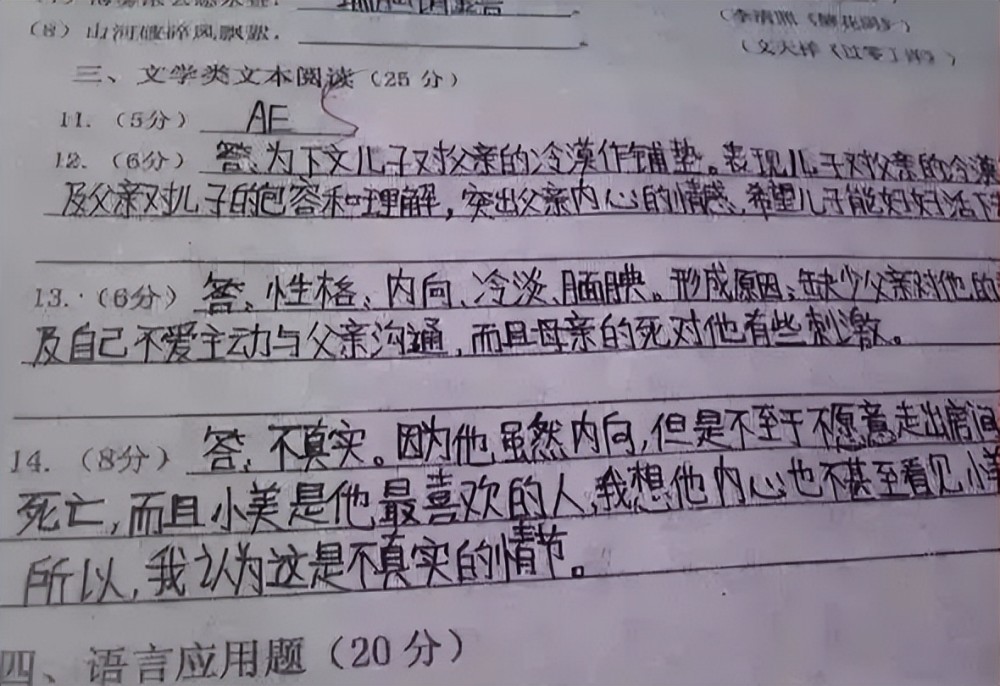 (8) 山河破碎风飘絮,
(李清照《
(文天祥《过零丁洋》)
三、文学类文本阅读(25 分)
11.(5分) AE
12.(6分) 答:为下文儿子对父亲的冷漠作铺垫。表现儿子对父亲的冷漠
及父亲对儿子的包容和理解,突出父亲内心的情感,希望儿子能好好活下
13.(6分) 答:性格:内向、冷淡、腼腆。形成原因:缺少父亲对他的
及自己不爱主动与父亲沟通,而且母亲的死对他有些刺激。
14.(8分) 答:不真实。因为他虽然内向,但是不至于不愿意走出房间
死亡,而且小美是他最喜欢的人,我想他内心也不甚至看见小美
所以,我认为这是不真实的情节。
四、语言应用题(20 分)